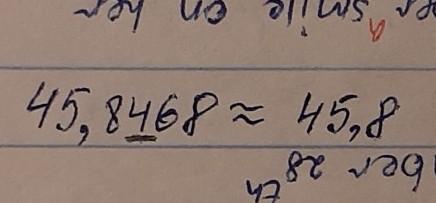 smile on her
45,8468 ≈ 45,8
ber 28th